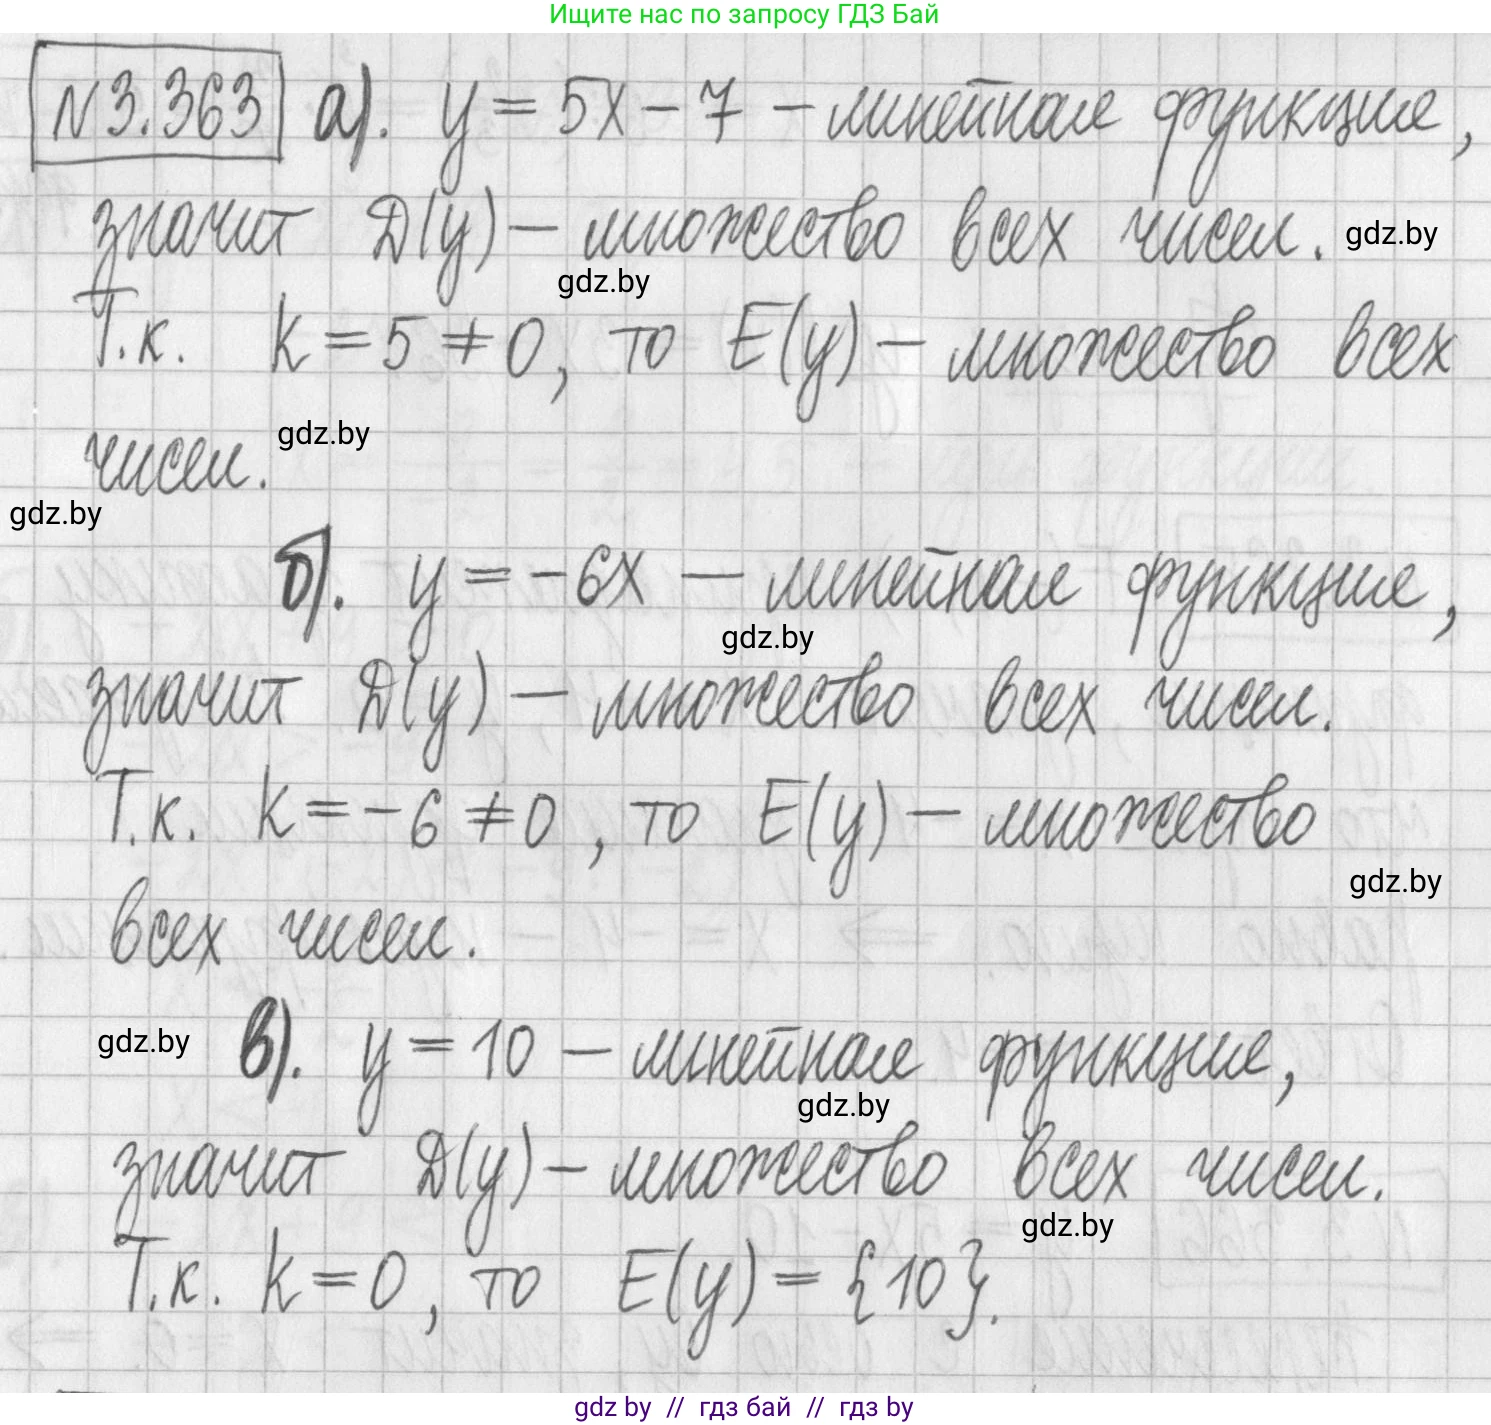 Ищите нас по запросу ГДЗ Бай
N3.363 а). y = 5x - 7 - линейная функция,
значит D(y) - множество всех чисел. gdz.by
gdz.by
Т.к. k = 5 ≠ 0, то E(y) - множество всех
чисел. gdz.by
gdz.by
б). y = -6x - линейная функция,
gdz.by
значит D(y) - множество всех чисел.
Т.к. k = -6 ≠ 0, то E(y) - множество
gdz.by
всех чисел.
gdz.by в). y = 10 - линейная функция,
gdz.by
значит D(y) - множество всех чисел.
gdz.by
Т.к. k = 0, то E(y) = {10}.
gdz by // гдз бай // гдз by